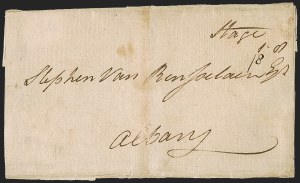 Stage
Stephen Van Rensselaer Esqr
Albany